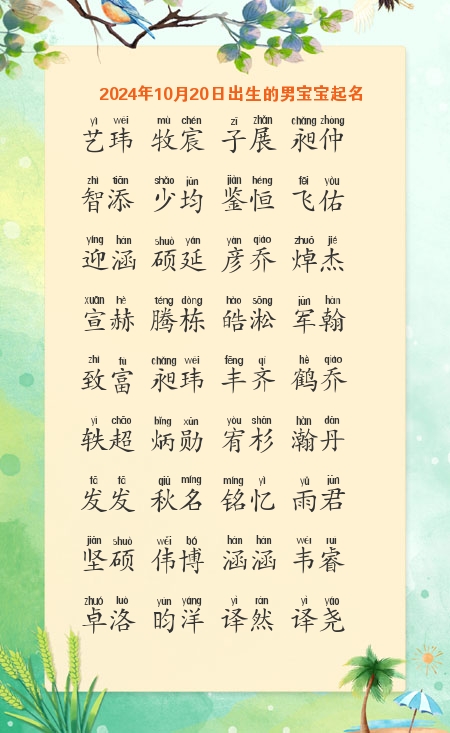 2024年10月20日出生的男宝宝起名
yì wěi mù chén zǐ zhǎn chǎng zhòng
艺玮 牧宸 子展 昶仲
zhì tiān shǎo jūn jiàn héng fēi yòu
智添 少均 鉴恒 飞佑
yíng hán shuò yán yàn qiáo zhuō jié
迎涵 硕延 彦乔 焯杰
xuān hè téng dòng hào sōng jūn hàn
宣赫 腾栋 皓淞 军翰
zhì fù chǎng wěi fēng qí hè qiáo
致富 昶玮 丰齐 鹤乔
yì chāo bǐng xūn yòu shān hàn dān
轶超 炳勋 宥杉 瀚丹
fā fā qiū míng míng yì yǔ jūn
发发 秋名 铭忆 雨君
jiān shuò wěi bó hán hán wéi ruì
坚硕 伟博 涵涵 韦睿
zhuó luò yún yáng yì rán yì yáo
卓洛 昀洋 译然 译尧